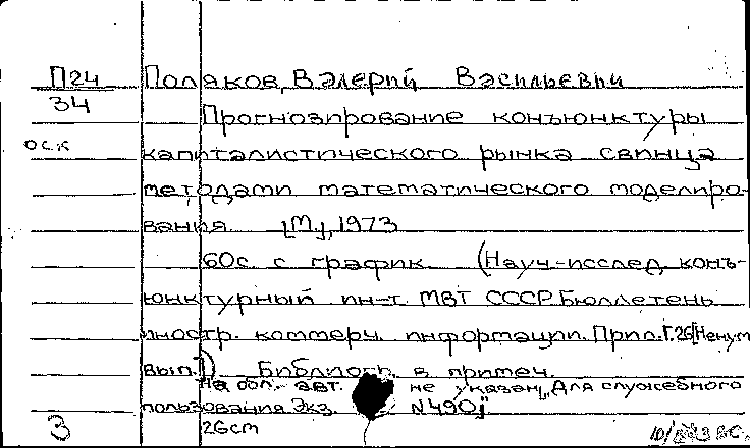 П24 Поляков, Валерий Васильевич
34
Прогнозирование конъюнктуры
оск
капиталистического рынка свинца
методами математического моделиро-
вания [М], 1973
60с. с график (Науч-исслед. конъ-
юнктурный ин-т. МВТ СССР. Бюллетень
иностр. коммерч. информации. Прил.
вып.]). Библиогр. в примеч.
На обл. авт. не указан, „Для служебного
пользования. Экз. N490"
3 26см